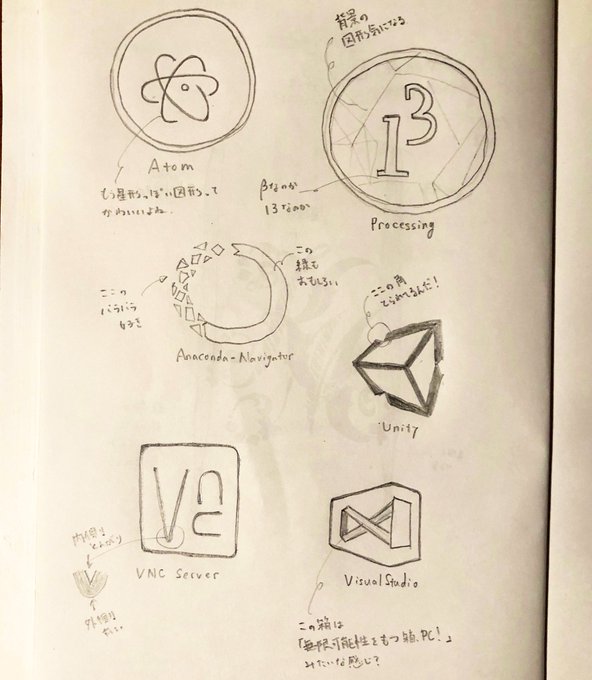 背景の
図形気になる
13
Atom
もう星形っぽい図形って
かわいいよね
βなのか
13なのか
Processing
この
縁も
おもしろい
ここの
バラバラ
好き
Anaconda-Navigator
ここの角
てられてるんだ!
Unity
Vnc
VNC Server
内側は
とんがり
外側は
Visual Studio
この箱は
「無限可能性をもつ箱、PC!」
みたいな感じ?